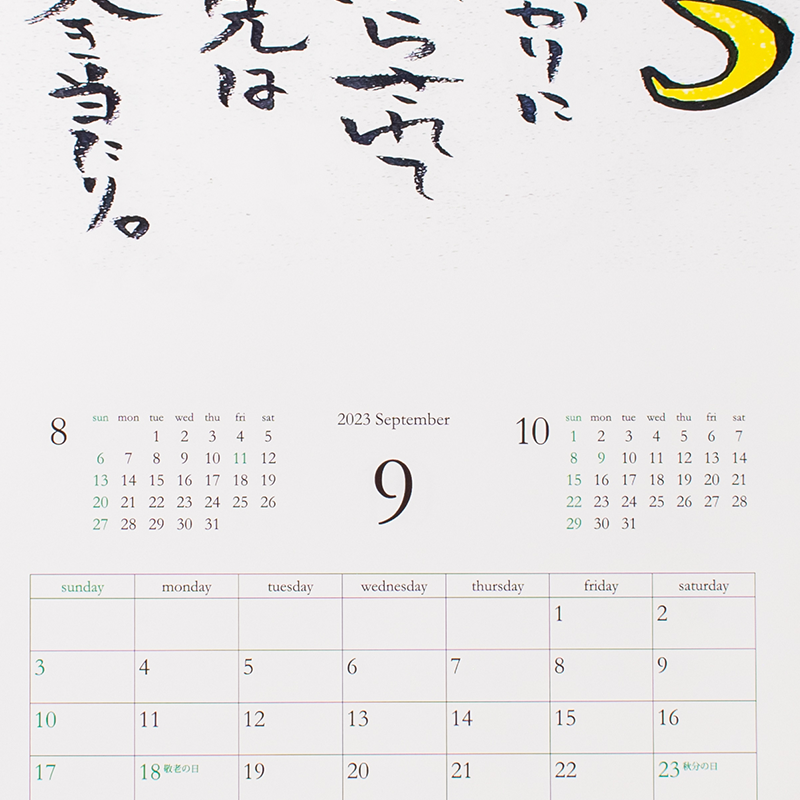 かりに
らされて
は
き当たり。
8
sun mon tue wed thu fri sat
1 2 3 4 5
6 7 8 9 10 11 12
13 14 15 16 17 18 19
20 21 22 23 24 25 26
27 28 29 30 31
2023 September
9
10
sun mon tue wed thu fri sat
1 2 3 4 5 6 7
8 9 10 11 12 13 14
15 16 17 18 19 20 21
22 23 24 25 26 27 28
29 30 31
sunday monday tuesday wednesday thursday friday saturday
1 2
3 4 5 6 7 8 9
10 11 12 13 14 15 16
17 18 敬老の日 19 20 21 22 23 秋分の日